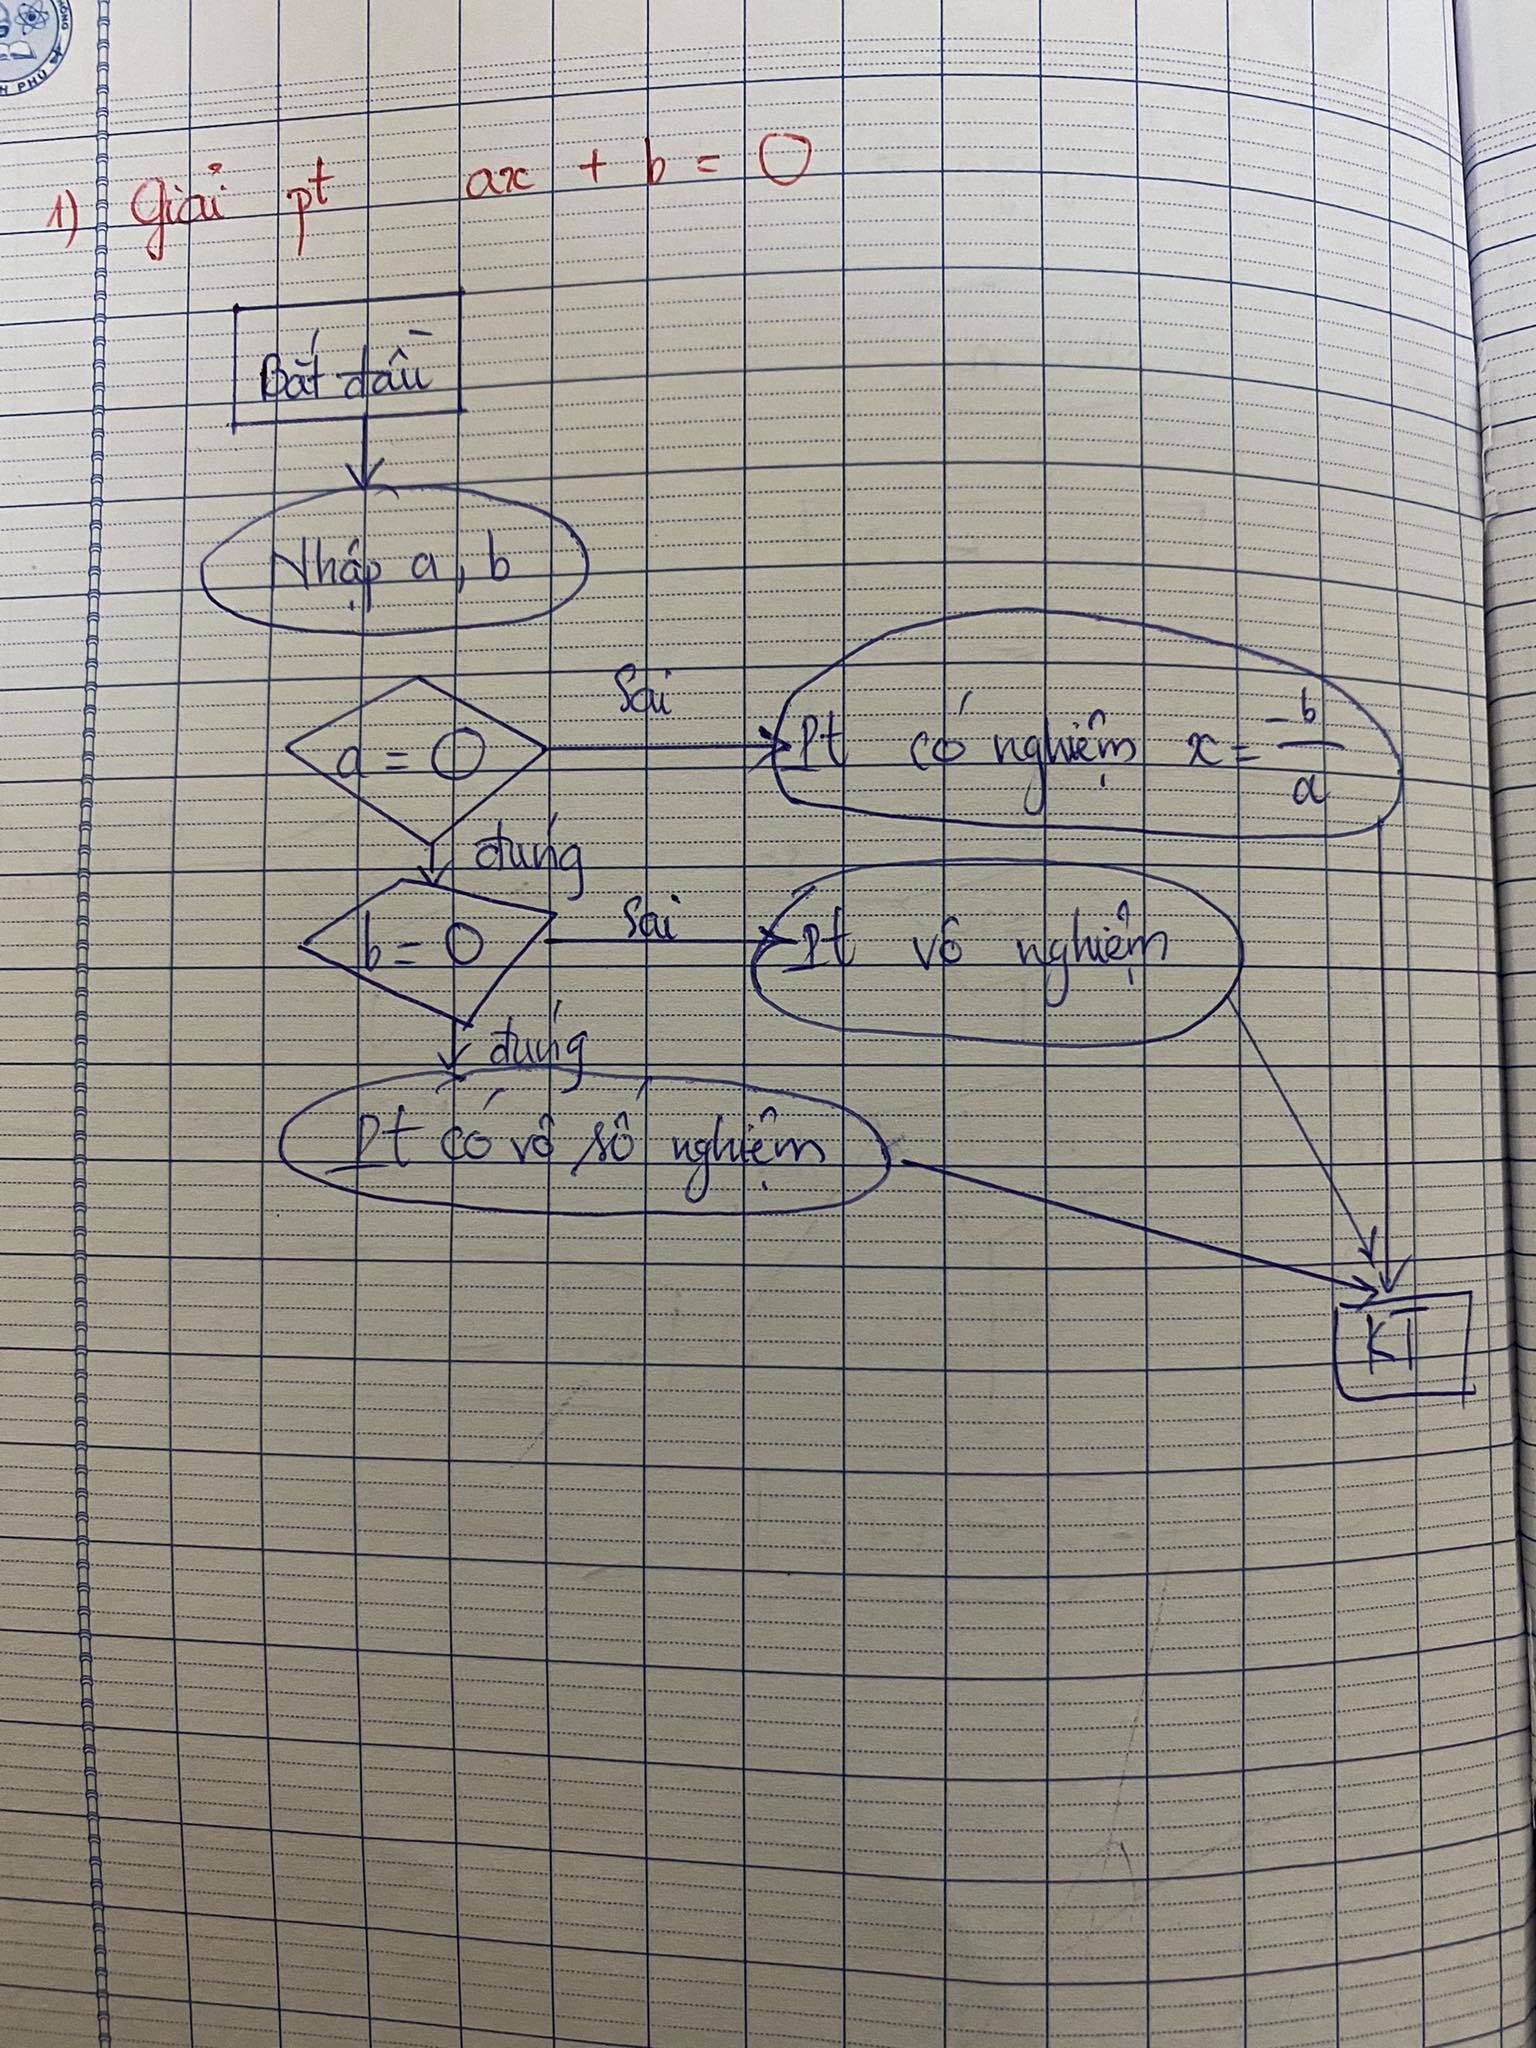 1) Giải pt ax + b = 0
Bắt đầu
Nhập a, b
a = 0
Sai
Pt có nghiệm x = -b/a
đúng
b = 0
Sai
Pt vô nghiệm
đúng
Pt có vô số nghiệm
KT